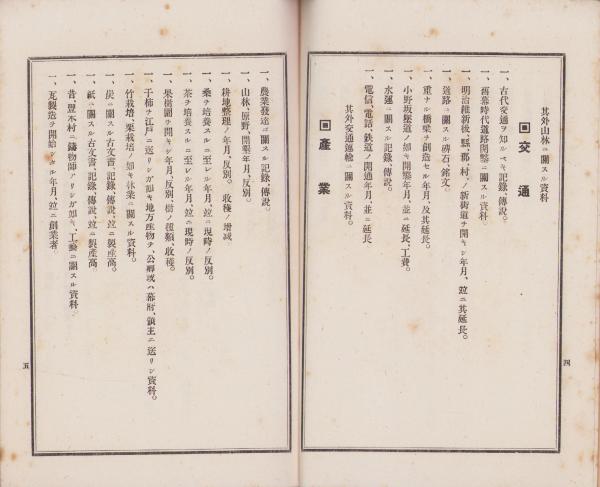 其外山林ニ關スル資料
回 交通
一、古代交通ヲ知ルベキ記錄、傳說。
一、舊幕時代道路開鑿ニ關スル資料。
一、明治維新後、縣、郡、村、ノ新街道ヲ開キシ年月、竝ニ其延長。
一、道路ニ關スル碑石、銘文。
一、重ナル橋梁ヲ創造セル年月、及其延長。
一、小野坂墜道ノ如キ開鑿年月、並ニ延長、工費。
一、水運ニ關スル記錄、傳說。
一、電信、電話、鐵道ノ開通年月、並ニ延長
其外交通運輸ニ關スル資料。
四
回 產業
一、農業發達ニ關スル記錄、傳說。
一、山林、原野、開墾年月、反別。
一、耕地整理ノ年月、反別。 收穫ノ增减
一、桑ヲ培養スルニ至レル年月、竝ニ現時ノ反別。
一、茶ヲ培養スルニ至レル年月、竝ニ現時ノ反別。
一、果樹園ヲ開キシ年月、反別、樹ノ種類、收穫。
一、干柿ヲ江戶ニ送リシガ如キ地方產物ヲ、公聊或ハ幕府、領主ニ送リシ資料。
一、竹栽培、栗栽培ノ如キ林業ニ關スル資料。
一、炭ニ關スル古文書、記錄、傳說、竝ニ製產高。
一、紙ニ關スル古文書、記錄、傳說、竝ニ製產高
一、昔、豐本村ニ、鑄物師アリシガ如キ、工藝ニ關スル資料
一、瓦製造ヲ開始シタル年月、竝ニ創業者
五